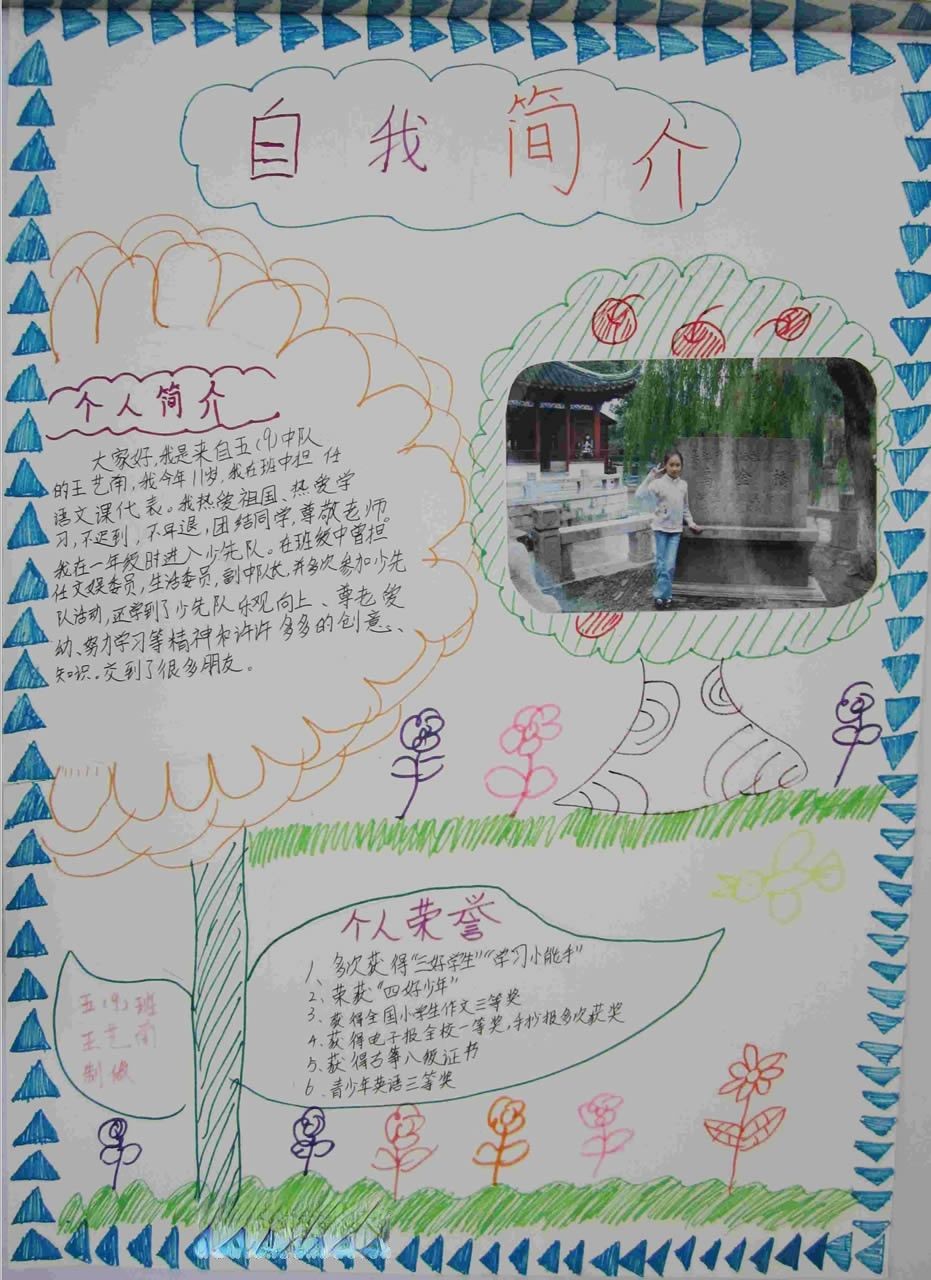 自我简介
个人简介
大家好,我是来自五(9)中队
的王艺南,我今年11岁,我在班中担任
语文课代表。我热爱祖国、热爱学
习,不迟到,不早退,团结同学,尊敬老师。
我在一年级时进入少先队。在班级中曾担
任文娱委员,生活委员,副中队长,并多次参加少先
队活动,还学到了少先队乐观向上、尊老爱
幼、努力学习等精神和许许多多的创意、
知识。交到了很多朋友。
个人荣誉
1、多次获得"三好学生""学习小能手"
2、荣获"四好少年"
3、获得全国小学生作文三等奖
4、获得电子报全校一等奖,手抄报多次获奖
5、获得古筝八级证书
6、青少年英语三等奖
五(9)班
王艺南
制做